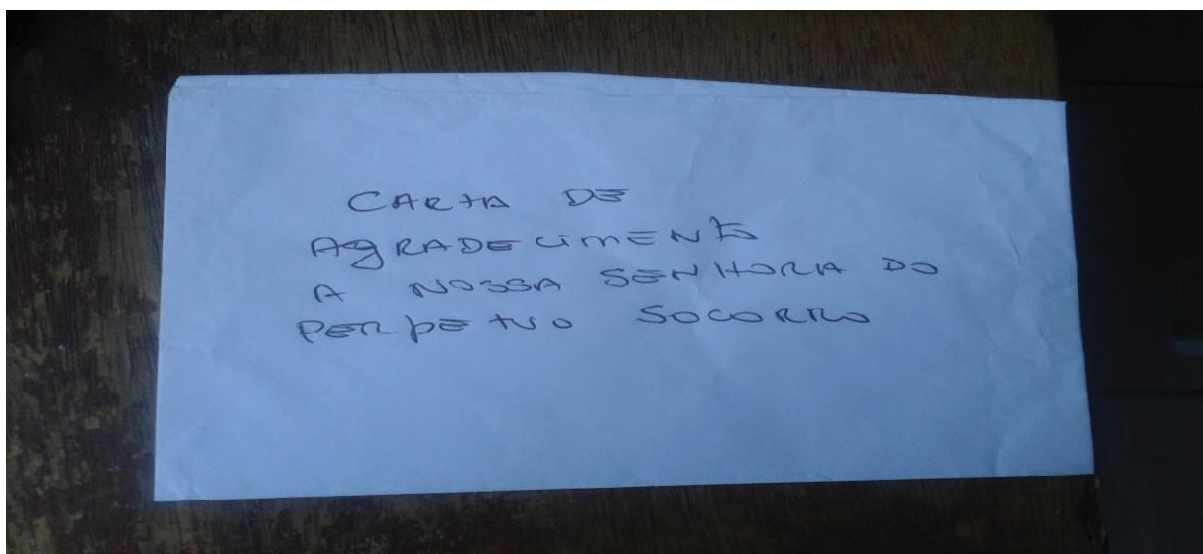 CARTA DE
AGRADECIMENTO
A NOSSA SENHORA DO
PERPETUO SOCORRO